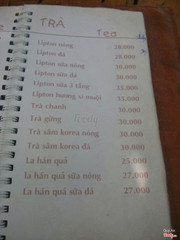 TRÀ
Tea
Lipton nóng 28.000
Lipton đá 28.000
Lipton sữa nóng 30.000
Lipton sữa đá 28.000
Lipton sữa 3 tầng 35.000
Lipton hương xí muội 35.000
Trà chanh 30.000
Trà gừng 30.000
Trà sâm korea nóng 30.000
Trà sâm korea đá 30.000
La hán quả 25.000
la hán quả sữa nóng 27.000
La hán quả sữa đá 27.000